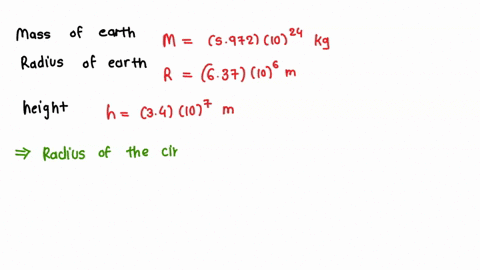 Mass of earth M = (5.972) (10)^24 kg
Radius of earth R = (6.37) (10)^6 m
height h = (3.4) (10)^7 m
⇒ Radius of the cir